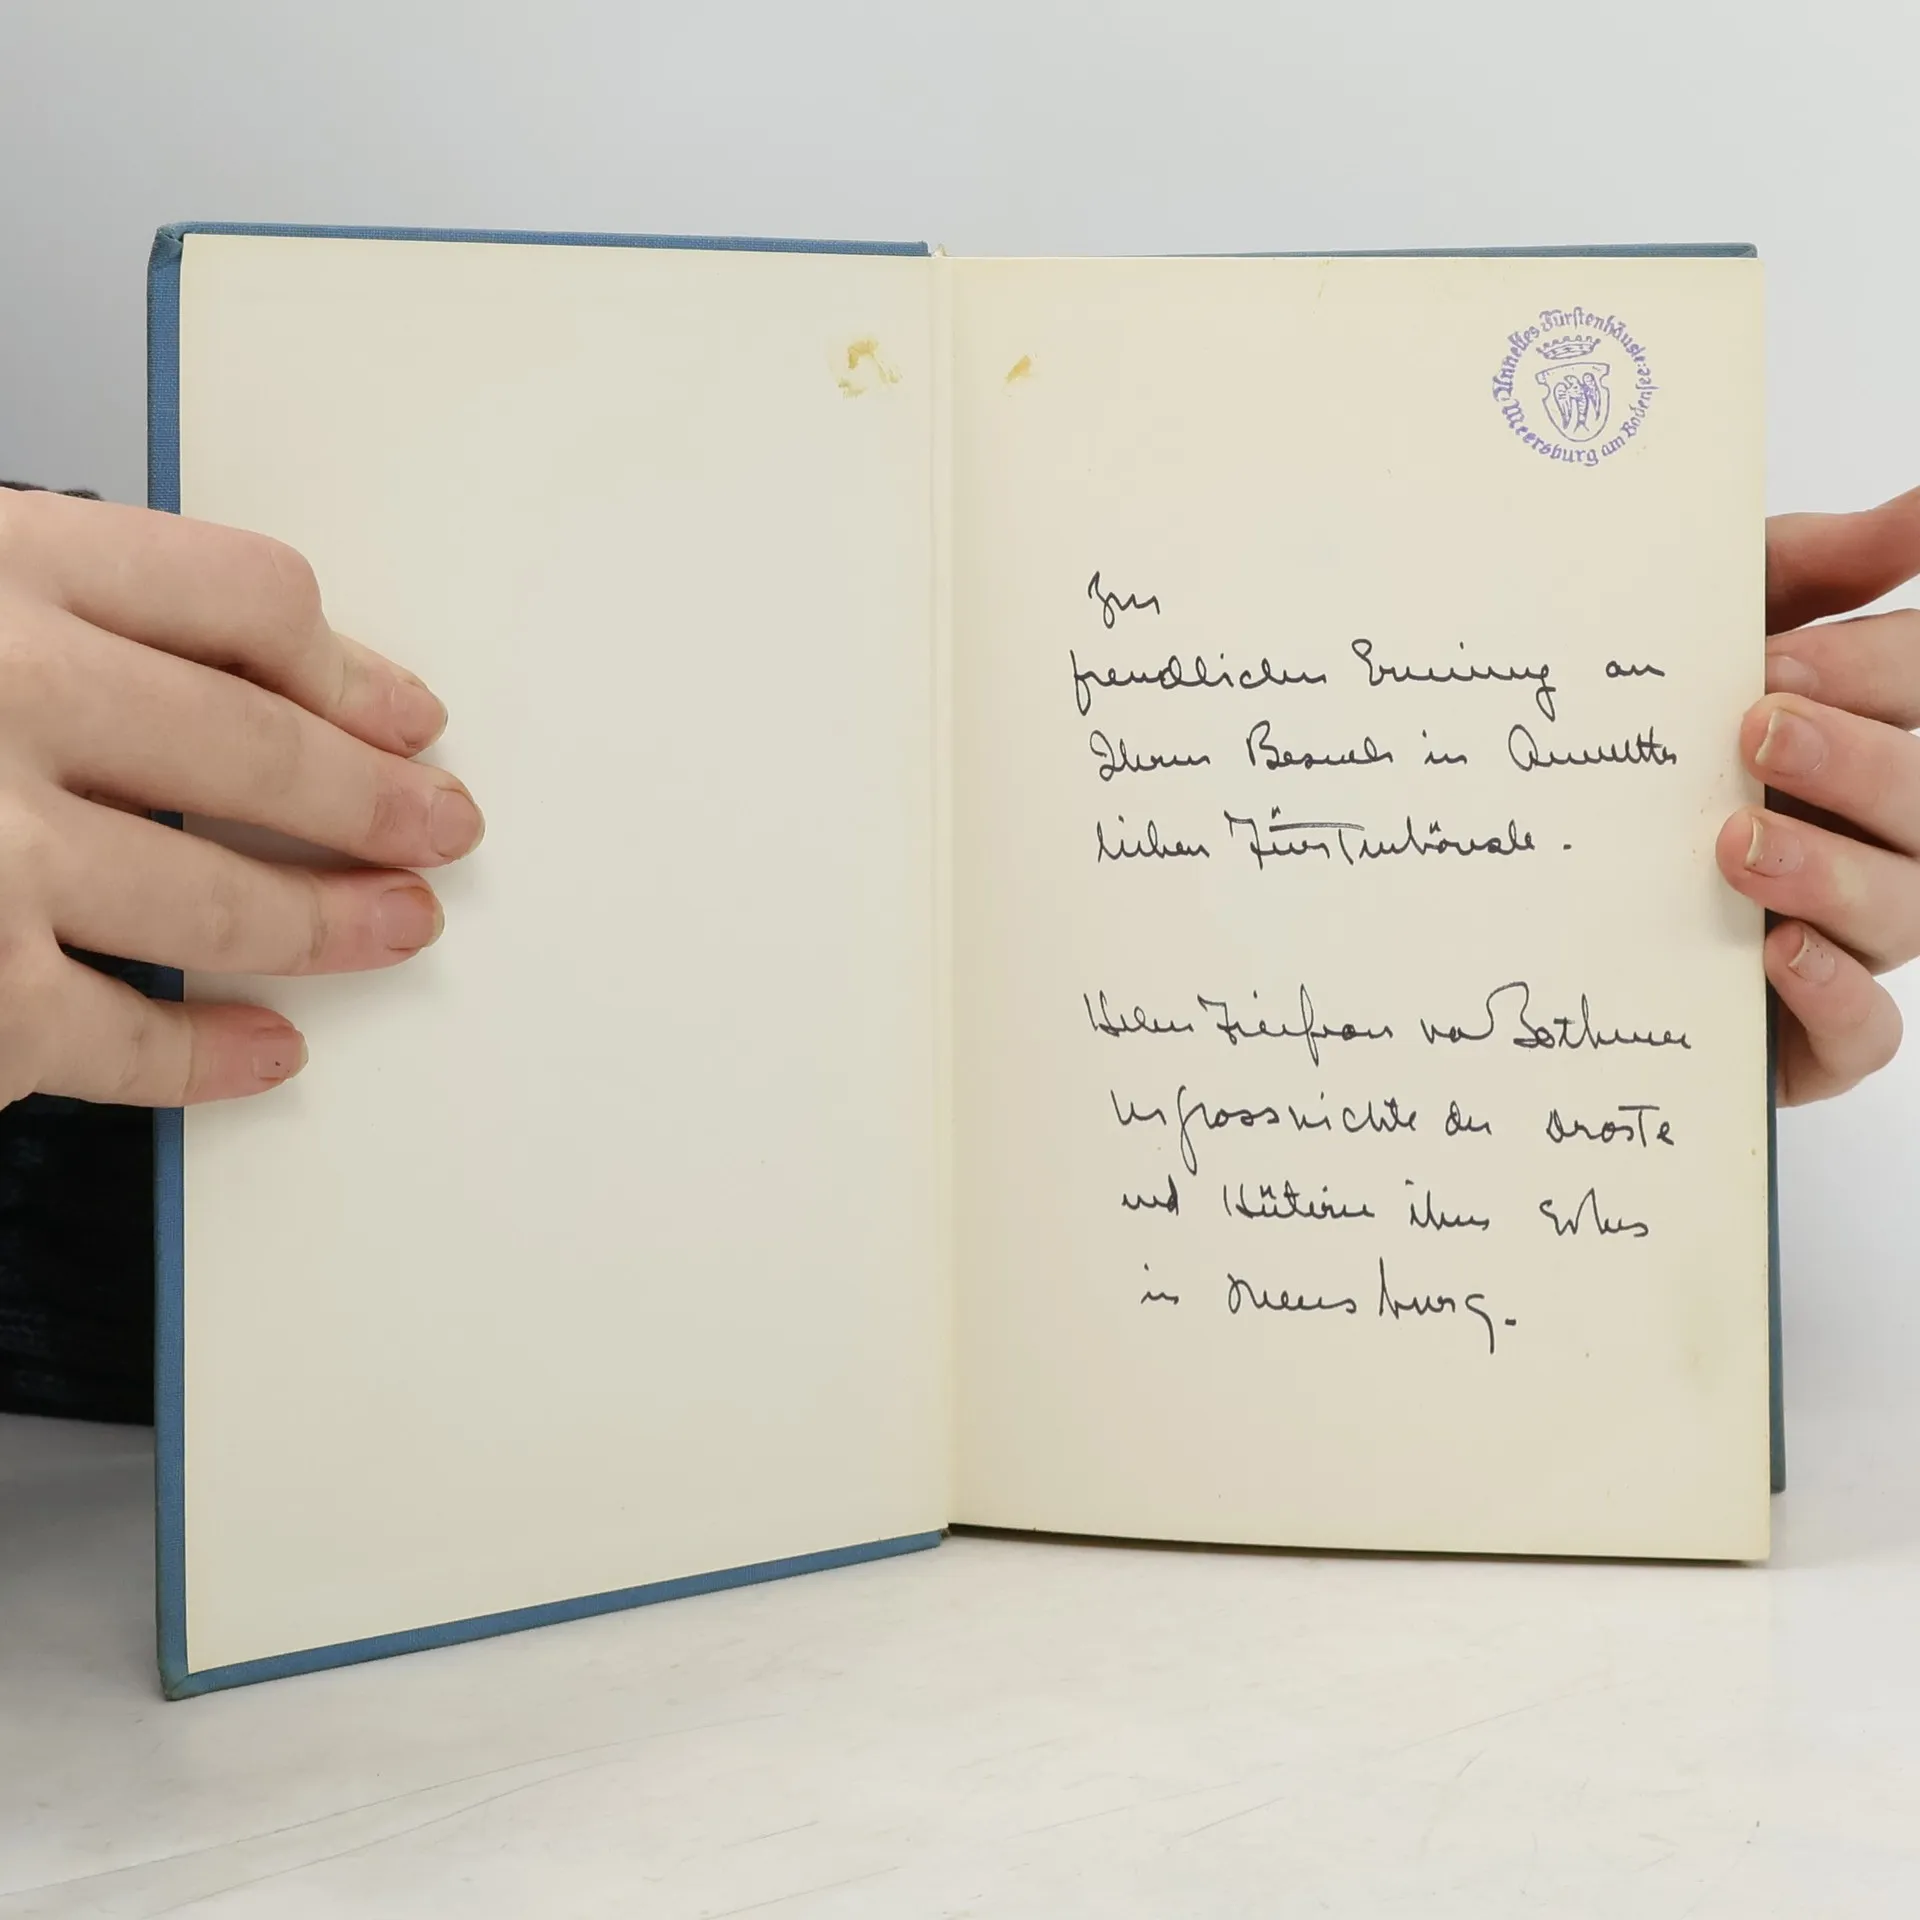 Annettes Fürstenhäusle:
Meersburg am Bodensee
Zur
freundlichen Erinnerung an
Ihren Besuch in Annettes
lieben Fürstenhäusle.
Helen Freifrau von Bothmer
Urgrossnichte der Droste
und Hüterin ihres Erbes
in Meersburg.